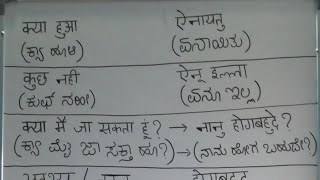 क्या हुआ ऐनायतु
(ಕ್ಯಾ ಹುಆ) (ಏನಾಯಿತು)
कुछ नही ऐनू इल्ला
(ಕುಛ್ ನಹೀ) (ಏನೂ ಇಲ್ಲ)
क्या मैं जा सकता हूं? → नानु होगबहुदे?
(ಕ್ಯಾ ಮೈ ಜಾ ಸಕ್ತಾ ಹೂ?) → (ನಾನು ಹೋಗ ಬಹುದೇ?)